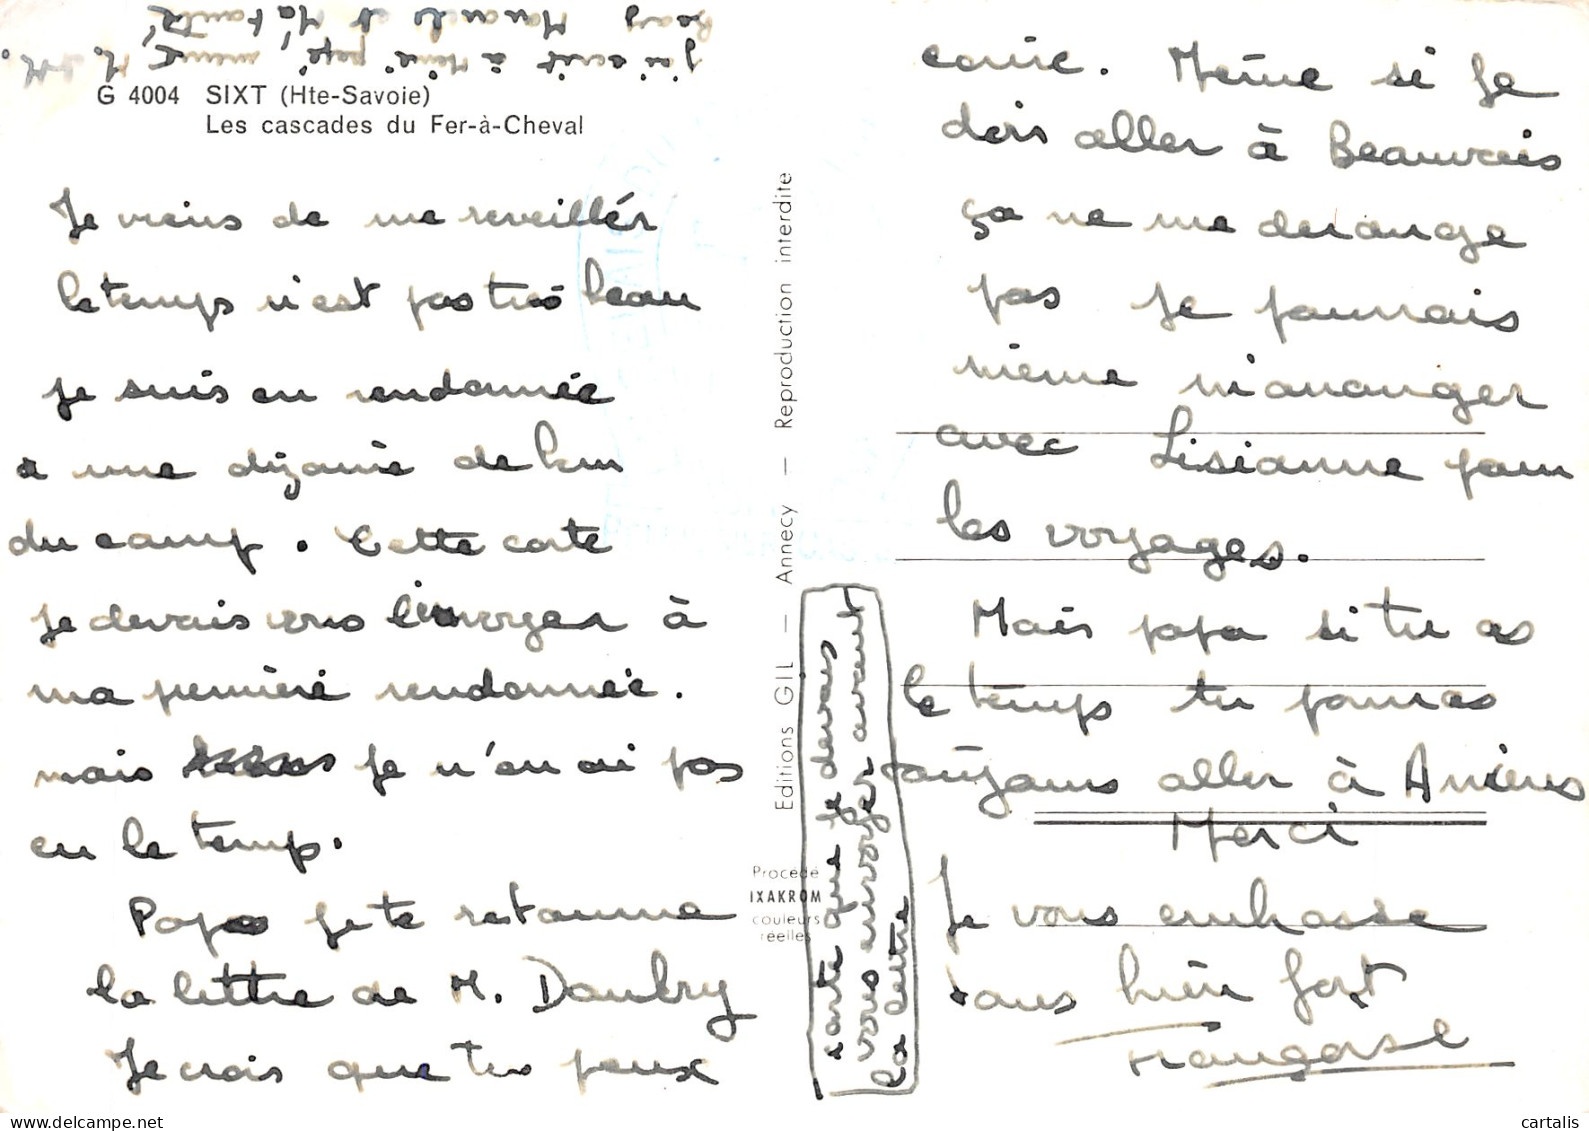 G 4004 SIXT (Hte-Savoie)
Les cascades du Fer-à-Cheval
Je viens de me reveillér
le temps n'est pas tres beau
je suis en rendonnée
a une dizaine de km
du camp. Cette carte
je devais vous l'envoyer à
ma première rendonnée.
mais je n'en ai pas
eu le temps.
Papa je te retourne
la lettre de M. Daubry
Je crois que tu peux
ecrire. Même si je
dois aller à Beauvais
ça ne me derange
pas je pourrais
même m'arranger
avec Lisianne pour
les voyages.
Mais papa si tu as
le temps tu pourras
toujours aller à Amiens
Merci
Je vous embrasse
tous bien fort
Françoise
carte que je devais
vous envoyer avant
la lettre
j'ai ecrit à Mémé pépé, M.
et Ma
Editions GIL — Annecy — Reproduction interdite
Procédé
IXAKROM
couleurs
réelles
cartalis
www.delcampe.net